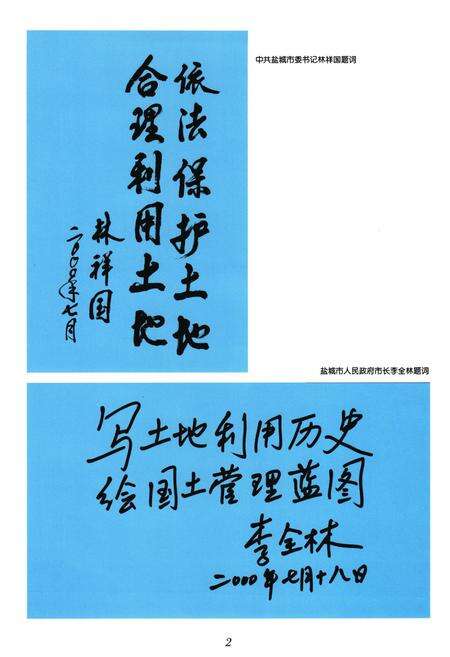 中共盐城市委书记林祥国题词
依法保护土地
合理利用土地
林祥国
二〇〇〇年七月
盐城市人民政府市长李全林题词
写土地利用历史
绘国土管理蓝图
李全林
二000年七月十八日
2